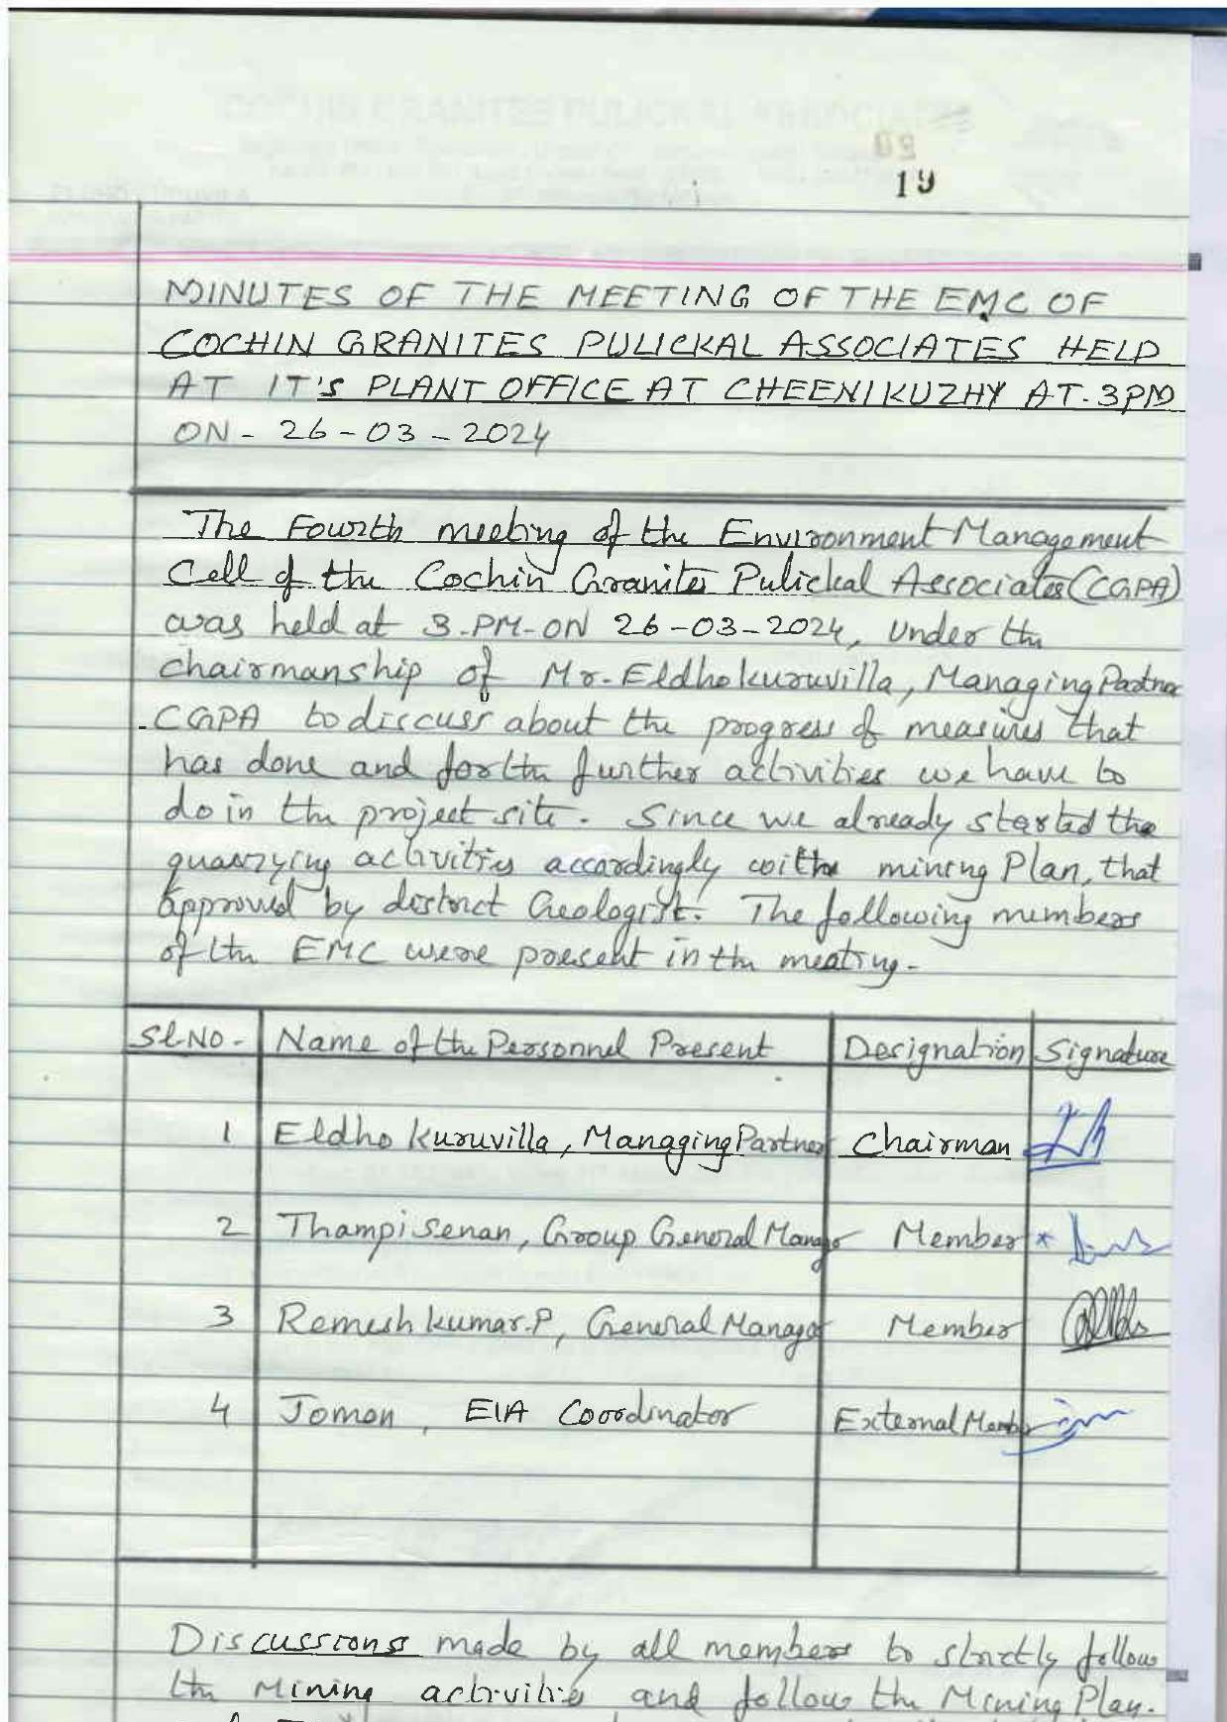 19
MINUTES OF THE MEETING OF THE EMC OF
COCHIN GRANITES PULICKAL ASSOCIATES HELD
AT IT'S PLANT OFFICE AT CHEENIKUZHY AT. 3PM
ON - 26-03-2024
The Fourth meeting of the Environment Management
Cell of the Cochin Granites Pulickal Associates (CGPA)
was held at 3-PM-ON 26-03-2024, Under the
chairmanship of Mr. Eldho kuruvilla, Managing Partner
CGPA to discuss about the progress of measures that
has done and for the further activities we have to
do in the project site. Since we already started the
quarrying activities accordingly with mining Plan, that
approved by district Geologist. The following members
of the EMC were present in the meeting.
Sl.NO. Name of the Personnel Present Designation Signature
1 Eldho kuruvilla, Managing Partner Chairman
2 Thampi Senan, Group General Manager Member
3 Remesh kumar.P, General Manager Member
4 Jomon, EIA Coordinator External Member
Discussions made by all members to strictly follow
the Mining activities and follow the Mining Plan.